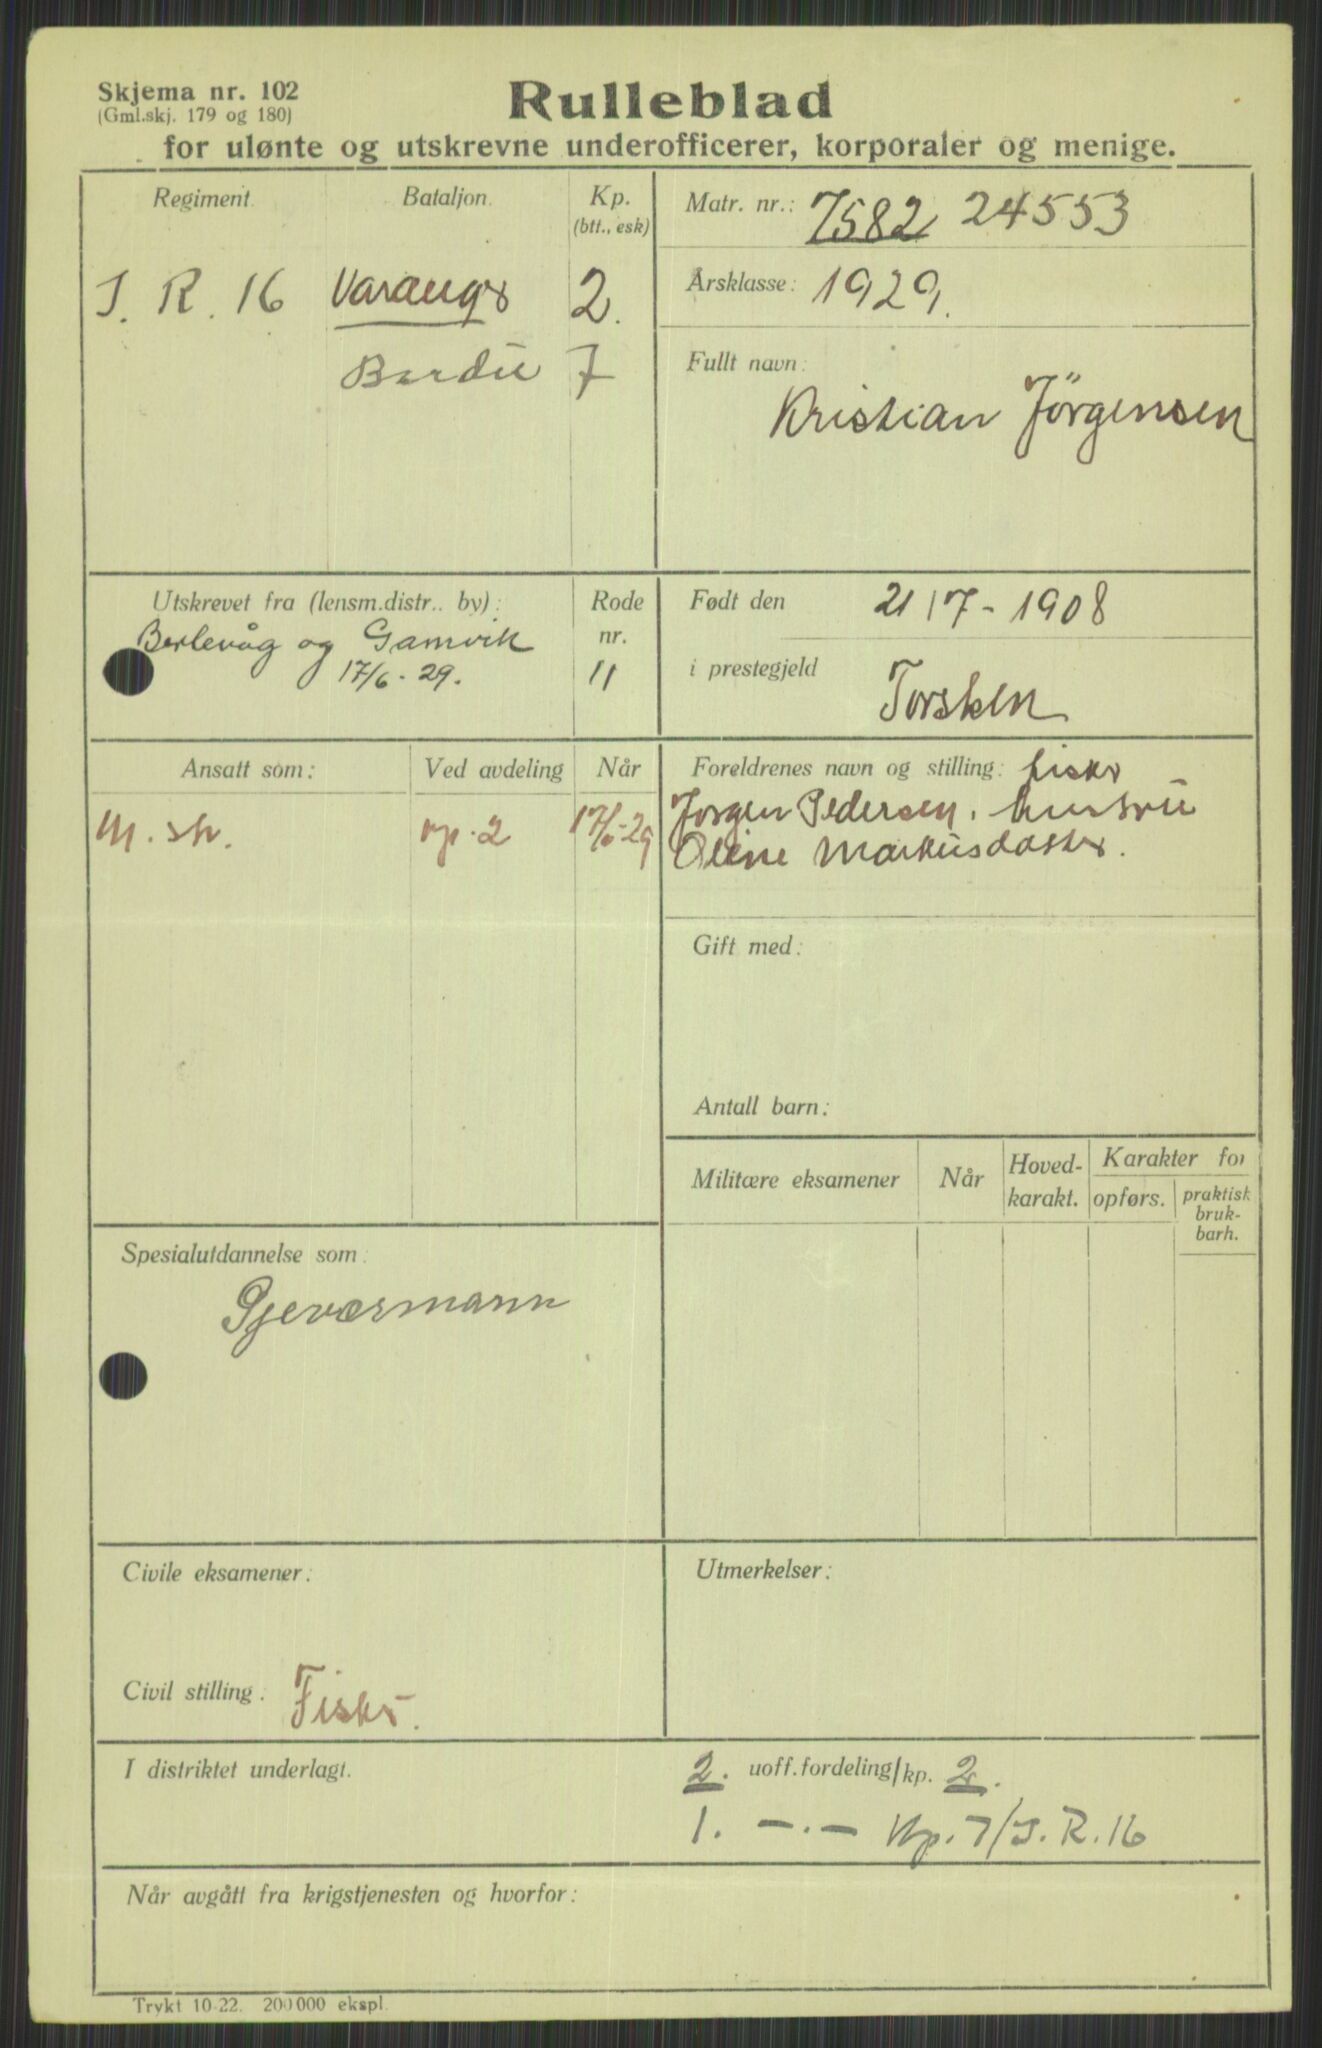 Skjema nr. 102
(Gml.skj. 179 og 180)
Rulleblad
for ulønte og utskrevne underofficerer, korporaler og menige.
Regiment. Bataljon. Kp. (btt., esk)
I. R. 16 Varanger 2.
Bardu 7
Matr. nr.: 7582 24553
Årsklasse: 1929.
Fullt navn:
Kristian Jörgensen
Utskrevet fra (lensm.distr.. by): Rode nr.
Berlevåg og Gamvik
17/6-29. 11
Født den 21/7-1908
i prestegjeld
Torsken
Ansatt som: Ved avdeling Når
M. sk. kp. 2 17/6-29
Foreldrenes navn og stilling: fisker
Jørgen Pedersen. hustru
Oline Markusdatter.
Gift med:
Antall barn:
Militære eksamener Når Hoved-karakt. Karakter for
opførs. praktisk bruk-barh.
Spesialutdannelse som:
Gjeværmann
Civile eksamener:
Utmerkelser:
Civil stilling: Fisker.
I distriktet underlagt.
2. uoff.fordeling/kp. 2.
1. —.— Kp. 7/I.R.16
Når avgått fra krigstjenesten og hvorfor:
Trykt 10-22. 200000 ekspl.